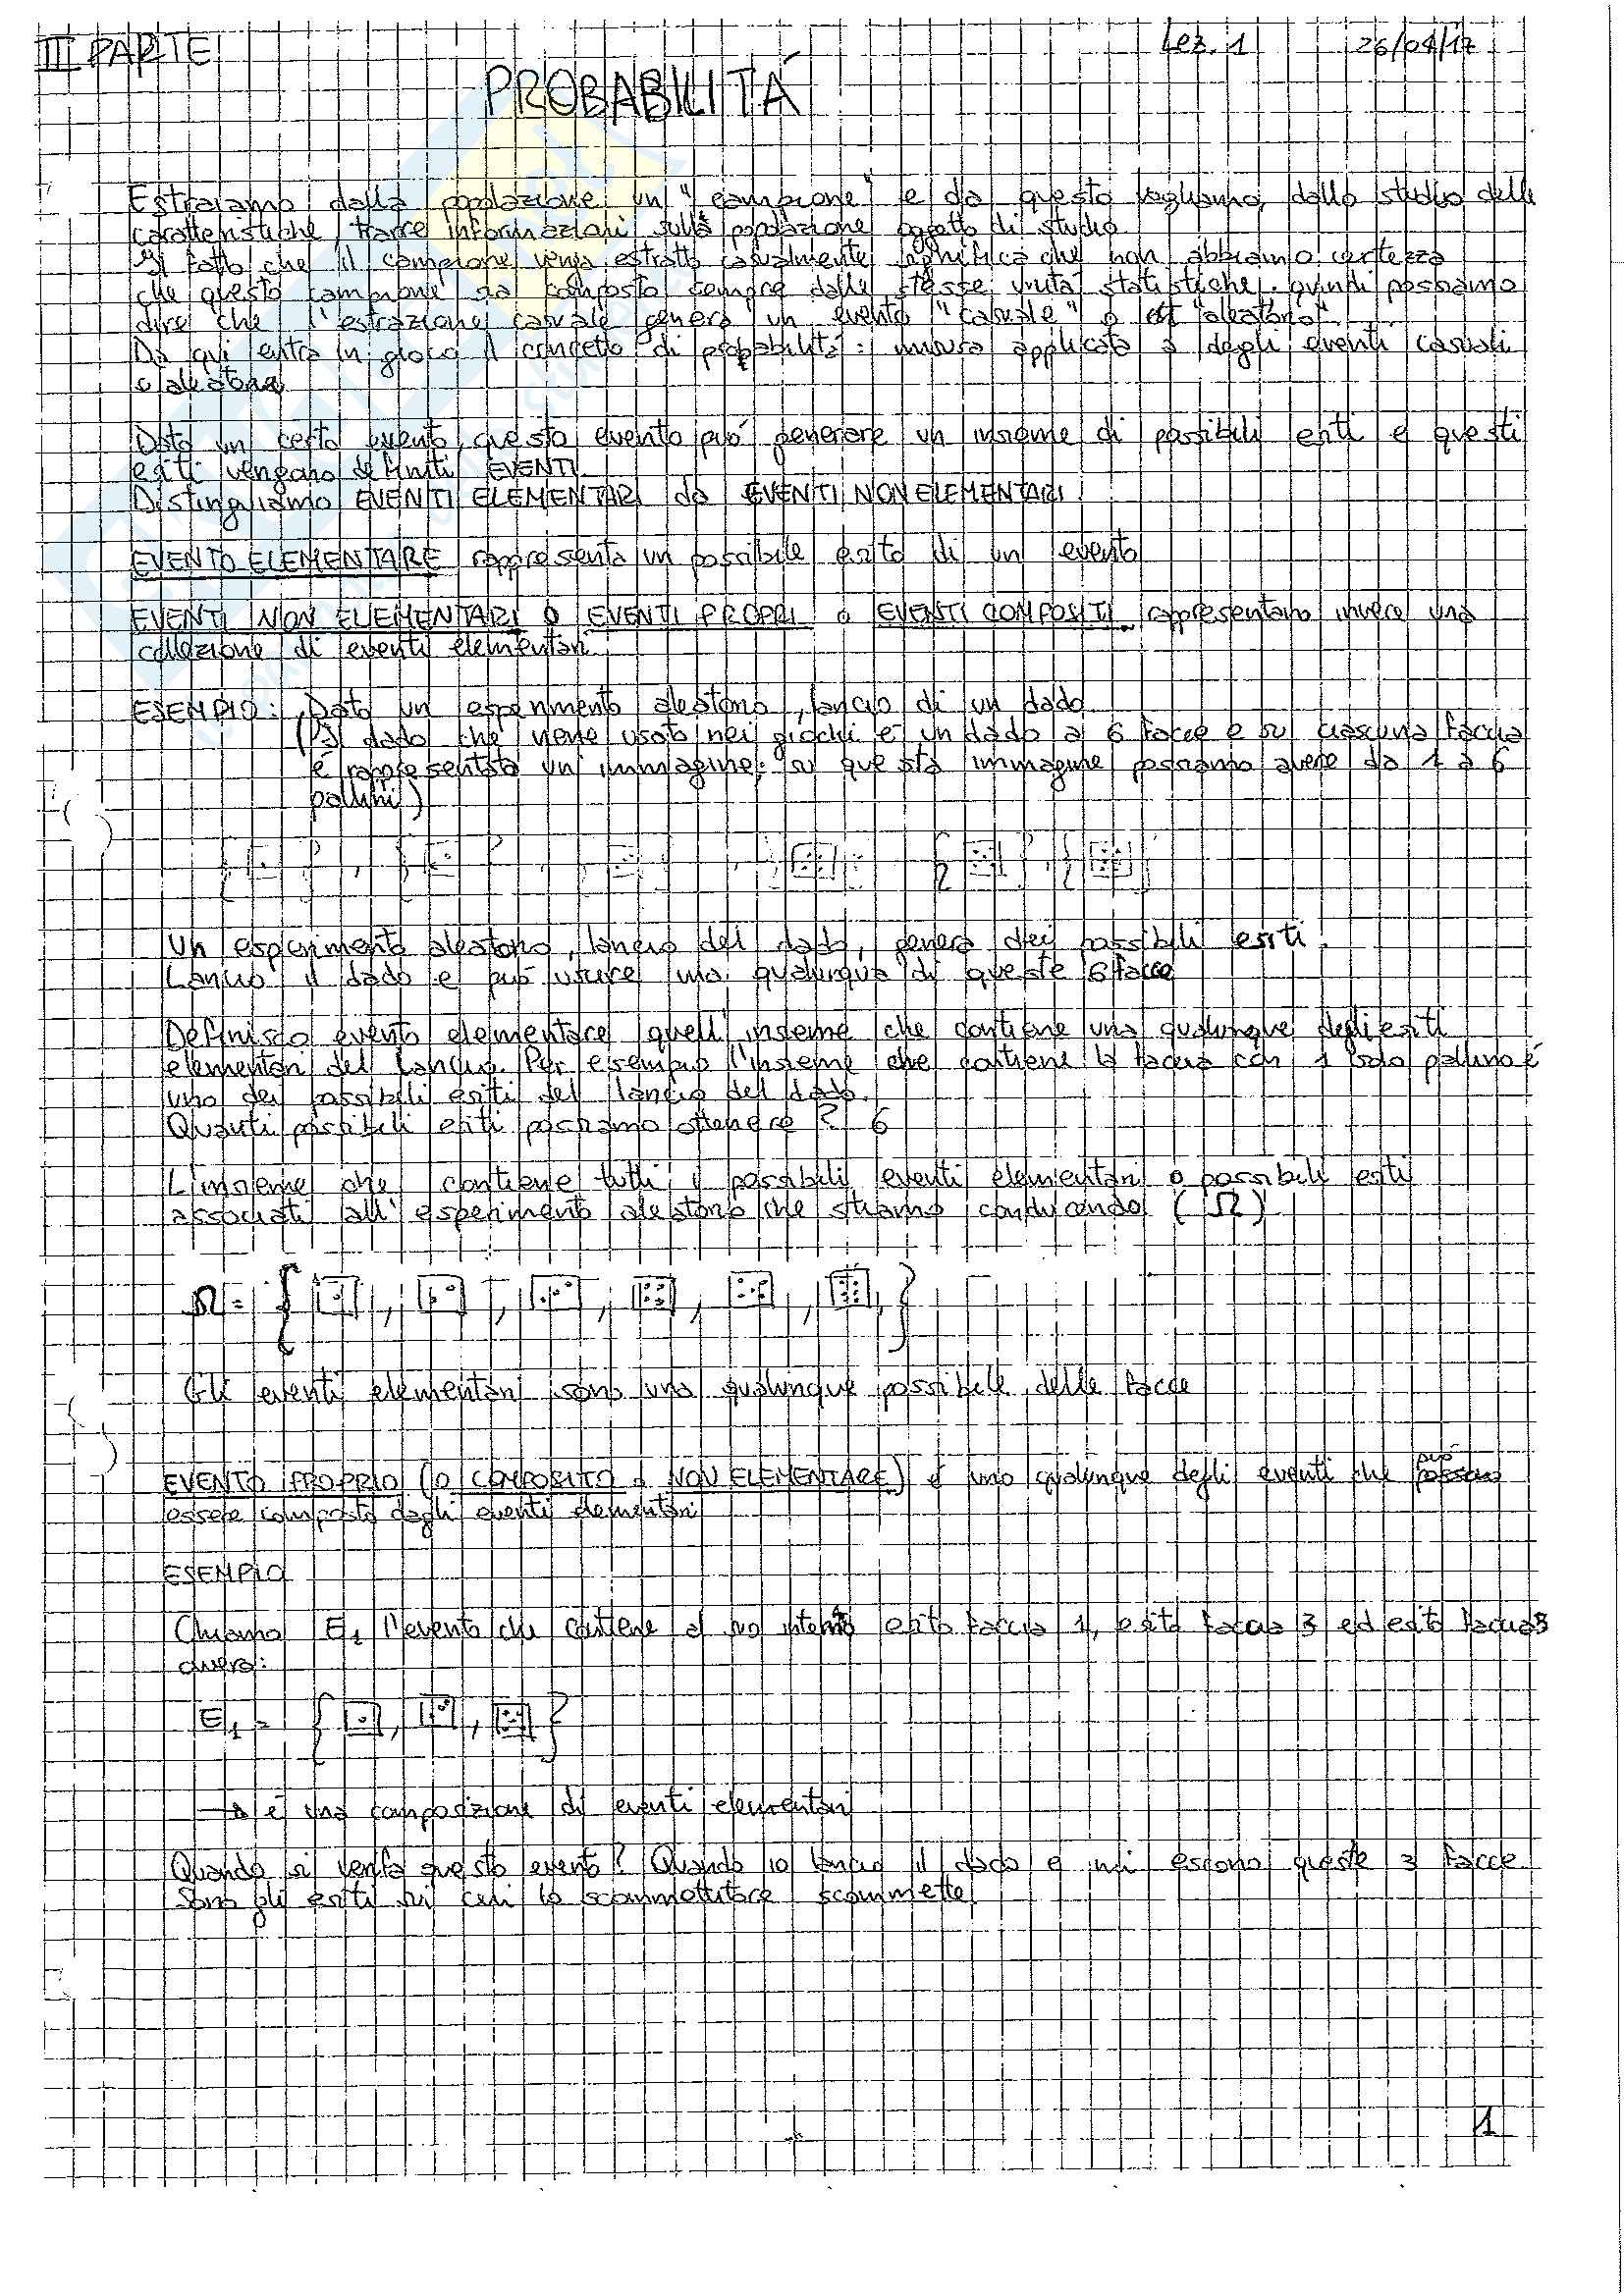 III PARTE
Lez. 1 26/04/17
PROBABILITÁ
Estraiamo dalla popolazione un "campione" e da questo vogliamo, dallo studio delle
caratteristiche, trarre informazioni sulla popolazione oggetto di studio
Il fatto che il campione venga estratto casualmente significa che non abbiamo certezza
che questo campione sia composto sempre dalle stesse unità statistiche. quindi possiamo
dire che l'estrazione casuale genera un evento "casuale" o "aleatorio".
Da qui entra in gioco il concetto di probabilità: misura applicata a degli eventi casuali
o aleatori
Dato un certo evento, questo evento può generare un insieme di possibili esiti e questi
esiti vengono definiti EVENTI
Distinguiamo EVENTI ELEMENTARI da EVENTI NON ELEMENTARI
EVENTO ELEMENTARE rappresenta un possibile esito di un evento
EVENTI NON ELEMENTARI O EVENTI PROPRI o EVENTI COMPOSITI rappresentano invece una
collezione di eventi elementari
ESEMPIO: Dato un esperimento aleatorio, lancio di un dado
(Il dado che viene usato nei giochi è un dado a 6 facce e su ciascuna faccia
è rappresentata un'immagine; su questa immagine possiamo avere da 1 a 6
pallini)
Un esperimento aleatorio, lancio del dado, genera dei possibili esiti.
Lancio il dado e può uscire una qualunque di queste 6 facce
Definisco evento elementare quell'insieme che contiene una qualunque degli esiti
elementari del lancio. Per esempio l'insieme che contiene la faccia con 1 solo pallino è
uno dei possibili esiti del lancio del dado.
Quanti possibili esiti possiamo ottenere? 6
L'insieme che contiene tutti i possibili eventi elementari o possibili esiti
associati all'esperimento aleatorio che stiamo conducendo (Ω)
Ω = { , , , , , }
Gli eventi elementari sono una qualunque possibile delle facce
EVENTO PROPRIO (O COMPOSITO o NON ELEMENTARE) è uno qualunque degli eventi che può
essere composto dagli eventi elementari
ESEMPIO
Chiamo E1 l'evento che contiene al suo interno esito faccia 1, esito faccia 3 ed esito faccia 5
ovvero:
E1 = { , , }
→ è una composizione di eventi elementari
Quando si verifica questo evento? Quando io lancio il dado e mi escono queste 3 facce
Sono gli esiti su cui lo scommettitore scommette
1